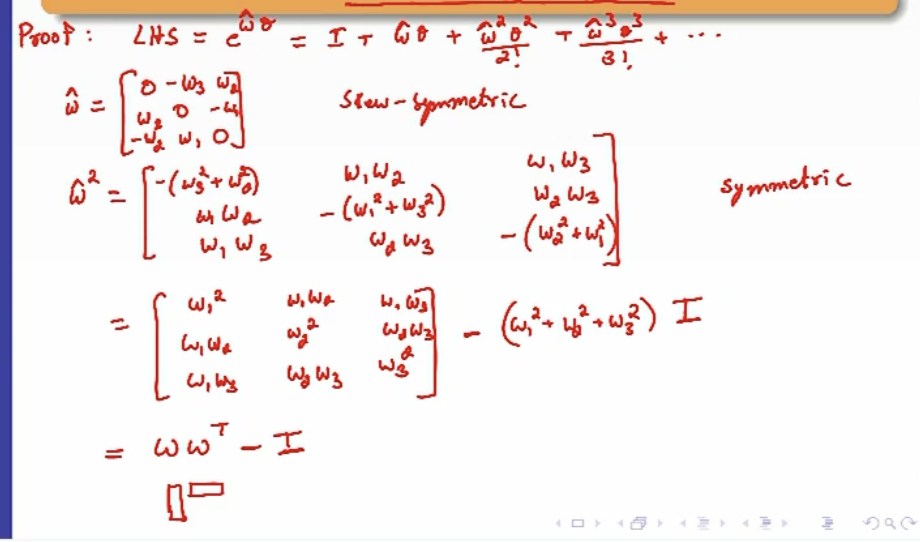 Proof : LHS = e^{ω̂θ} = I + ω̂θ + ω̂²θ²/2! + ω̂³θ³/3! + ...
ω̂ = [0 -ω₃ ω₂
ω₃ 0 -ω₁
-ω₂ ω₁ 0] Skew-symmetric
ω̂² = [-(ω₃²+ω₂²) ω₁ω₂ ω₁ω₃
ω₁ω₂ -(ω₁²+ω₃²) ω₂ω₃
ω₁ω₃ ω₂ω₃ -(ω₂²+ω₁²)] symmetric
= [ω₁² ω₁ω₂ ω₁ω₃
ω₁ω₂ ω₂² ω₂ω₃
ω₁ω₃ ω₂ω₃ ω₃²] - (ω₁²+ω₂²+ω₃²) I
= ωωᵀ - I